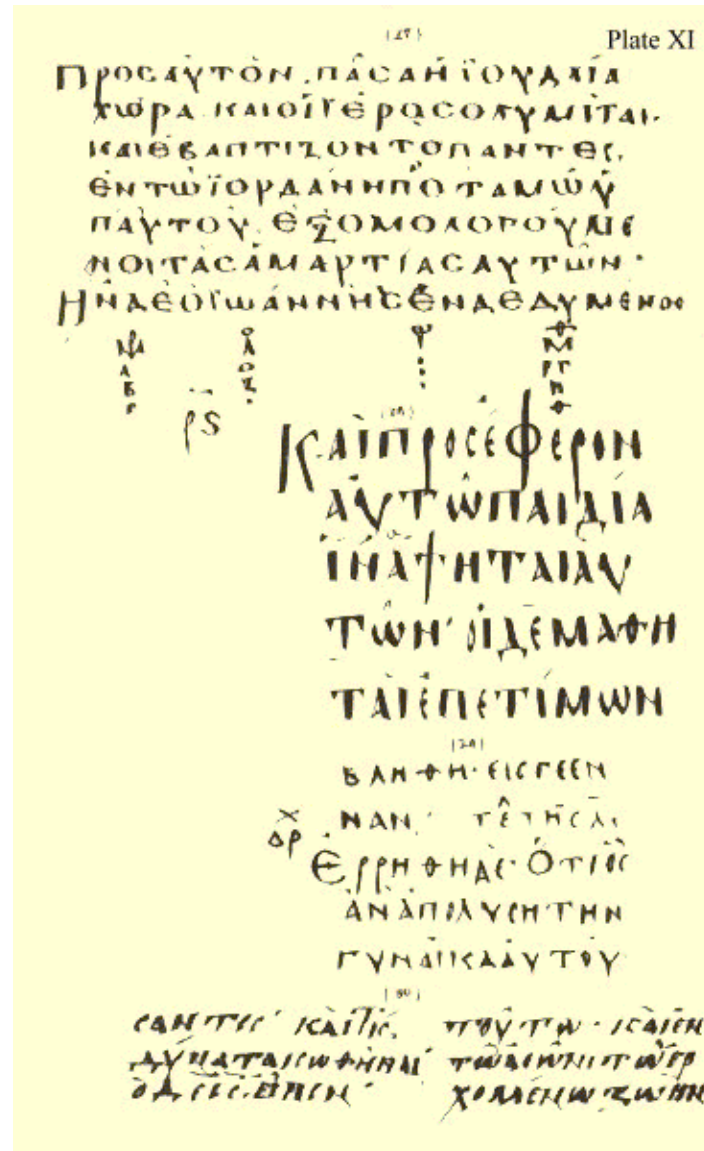 (27)
Plate XI
ΠΡΟCΑΥΤΟΝ. ΠΑCΑΗΪΟΥΔΑΙΑ
ΧΩΡΑ ΚΑΙΟΙΪΕΡΟCΟΛΥΜΙΤΑΙ.
ΚΑΙΕΒΑΠΤΙΖΟΝΤΟΠΑΝΤΕC,
ΕΝΤΩΪΟΡΔΑΝΗΠΟΤΑΜΩΫ
ΠΑΥΤΟΥ. ΕΞΟΜΟΛΟΓΟΥΜΕ
ΝΟΙΤΑCΑΜΑΡΤΙΑCΑΥΤΩΝ·
ΗΝΔΕΟΪΩΑΝΝΗCΕΝΔΕΔΥΜΕΝΟC
(28)
ΚΑΙΠΡΟCΕΦΕΡΟΝ
ΑΥΤΩΠΑΙΔΙΑ
ΪΝΑΑΨΗΤΑΙΑΥ
ΤΩΝ· ΟΙΔΕΜΑΘΗ
ΤΑΙΕΠΕΤΙΜΩΝ
(29)
ΒΛΗΘΗ·ΕΙCΓΕΕΝ
ΝΑΝ·
ΕΡΡΗΘΗΔΕ·ΟΤΙΟC
ΑΝΑΠΟΛΥCΗΤΗΝ
ΓΥΝΑΙΚΑΑΥΤΟΥ
(30)
CΑΝΤΕC· ΚΑΙΤΙC
ΔΥΝΑΤΑΙCΩΘΗΝΑΙ·
ΟΔΕΙC·ΕΙΠΕΝ·
ΤΟΥΤΩ· ΚΑΙΕΝ
ΤΩΑΙΩΝΙΤΩΕΡ
ΧΟΜΕΝΩΖΩΗΝ